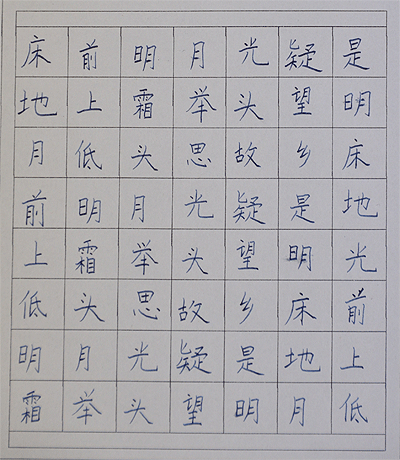 床前明月光疑是
地上霜举头望明
月低头思故乡床
前明月光疑是地
上霜举头望明光
低头思故乡床前
明月光疑是地上
霜举头望明月低